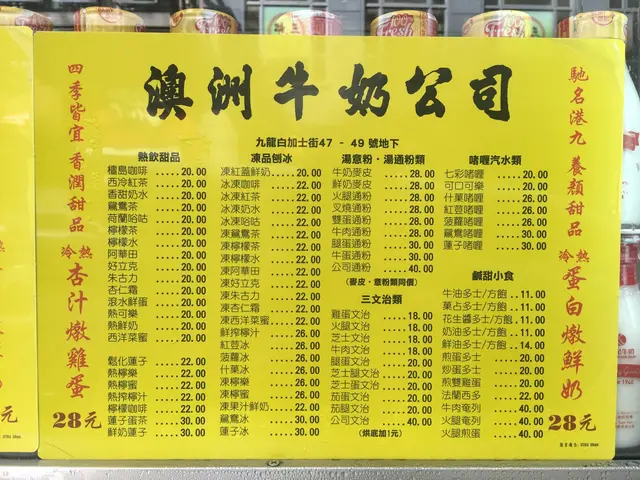 澳洲牛奶公司
九龍白加士街47 - 49 號地下
四季皆宜 香潤甜品
冷熱 杏汁燉雞蛋
28元
熱飲甜品
檀島咖啡.....20.00
西冷紅茶.....20.00
香甜奶水.....20.00
鴛鴦茶.....20.00
荷蘭哈咕.....20.00
檸檬茶.....20.00
檸檬水.....20.00
阿華田.....20.00
好立克.....20.00
朱古力.....20.00
杏仁霜.....20.00
滾水鮮蛋.....20.00
熱可樂.....20.00
熱鮮奶.....20.00
西洋菜蜜.....20.00
鬆化蓮子.....22.00
熱檸樂.....22.00
熱檸蜜.....22.00
熱搾檸汁.....22.00
檸檬咖啡.....22.00
蓮子蛋茶.....30.00
鮮奶蓮子.....30.00
凍品刨冰
凍紅蓋鮮奶.....22.00
冰凍咖啡.....22.00
冰凍紅茶.....22.00
冰凍奶水.....22.00
冰凍哈咕.....22.00
凍檸檬茶.....22.00
凍檸檬水.....22.00
凍阿華田.....22.00
凍好立克.....22.00
凍朱古力.....22.00
凍杏仁霜.....22.00
凍西洋菜蜜.....22.00
鮮搾檸汁.....26.00
紅荳冰.....26.00
菠蘿冰.....26.00
什菓冰.....26.00
凍檸樂.....26.00
凍檸蜜.....26.00
凍菓汁鮮奶.....22.00
鴛鴦冰.....30.00
蓮子冰.....30.00
湯意粉·湯通粉類
牛奶麥皮.....28.00
鮮奶麥皮.....28.00
火腿通粉.....28.00
叉燒通粉.....28.00
雙蛋通粉.....28.00
牛肉通粉.....28.00
腿蛋通粉.....30.00
牛蛋通粉.....30.00
公司通粉.....40.00
(麥皮·意粉類同價)
三文治類
雞蛋文治.....18.00
火腿文治.....18.00
芝士文治.....18.00
牛肉文治.....18.00
腿蛋文治.....20.00
芝士腿文治.....20.00
芝士蛋文治.....20.00
茄蛋文治.....20.00
茄腿文治.....20.00
公司文治.....40.00
(烘底加1元)
啫喱汽水類
七彩啫喱.....20.00
可口可樂.....20.00
什菓啫喱.....26.00
紅荳啫喱.....26.00
菠蘿啫喱.....26.00
鴛鴦啫喱.....30.00
蓮子啫喱.....30.00
鹹甜小食
牛油多士/方飽..11.00
菓占多士/方飽..11.00
花生醬多士/方飽.11.00
奶油多士/方飽..11.00
鮮油多士/方飽..14.00
煎蛋多士.....20.00
炒蛋多士.....20.00
煎雙雞蛋.....20.00
法蘭西多.....22.00
牛肉奄列.....40.00
火腿奄列.....40.00
火腿煎蛋.....40.00
馳名港九 養顏甜品
冷熱 蛋白燉鮮奶
28元